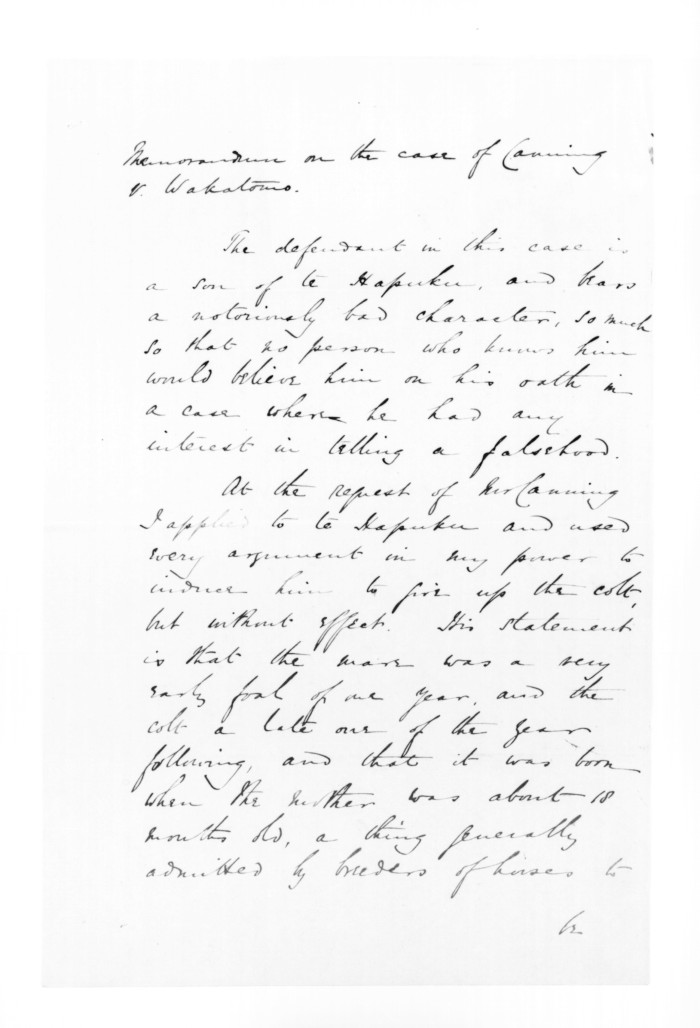 Memorandum on the case of Canning
v. Wakatomo.
The defendant in this case is
a son of te Hapuku, and bears
a notoriously bad character, so much
so that no person who knows him
would believe him on his oath in
a case where he had any
interest in telling a falsehood.
At the request of Mr Canning
I applied to te Hapuku and used
every argument in my power to
induce him to give up the colt,
but without effect. His statement
is that the mare was a very
early foal of one year, and the
colt a late one of the year
following, and that it was born
when the mother was about 18
months old, a thing generally
admitted by breeders of horses to
be